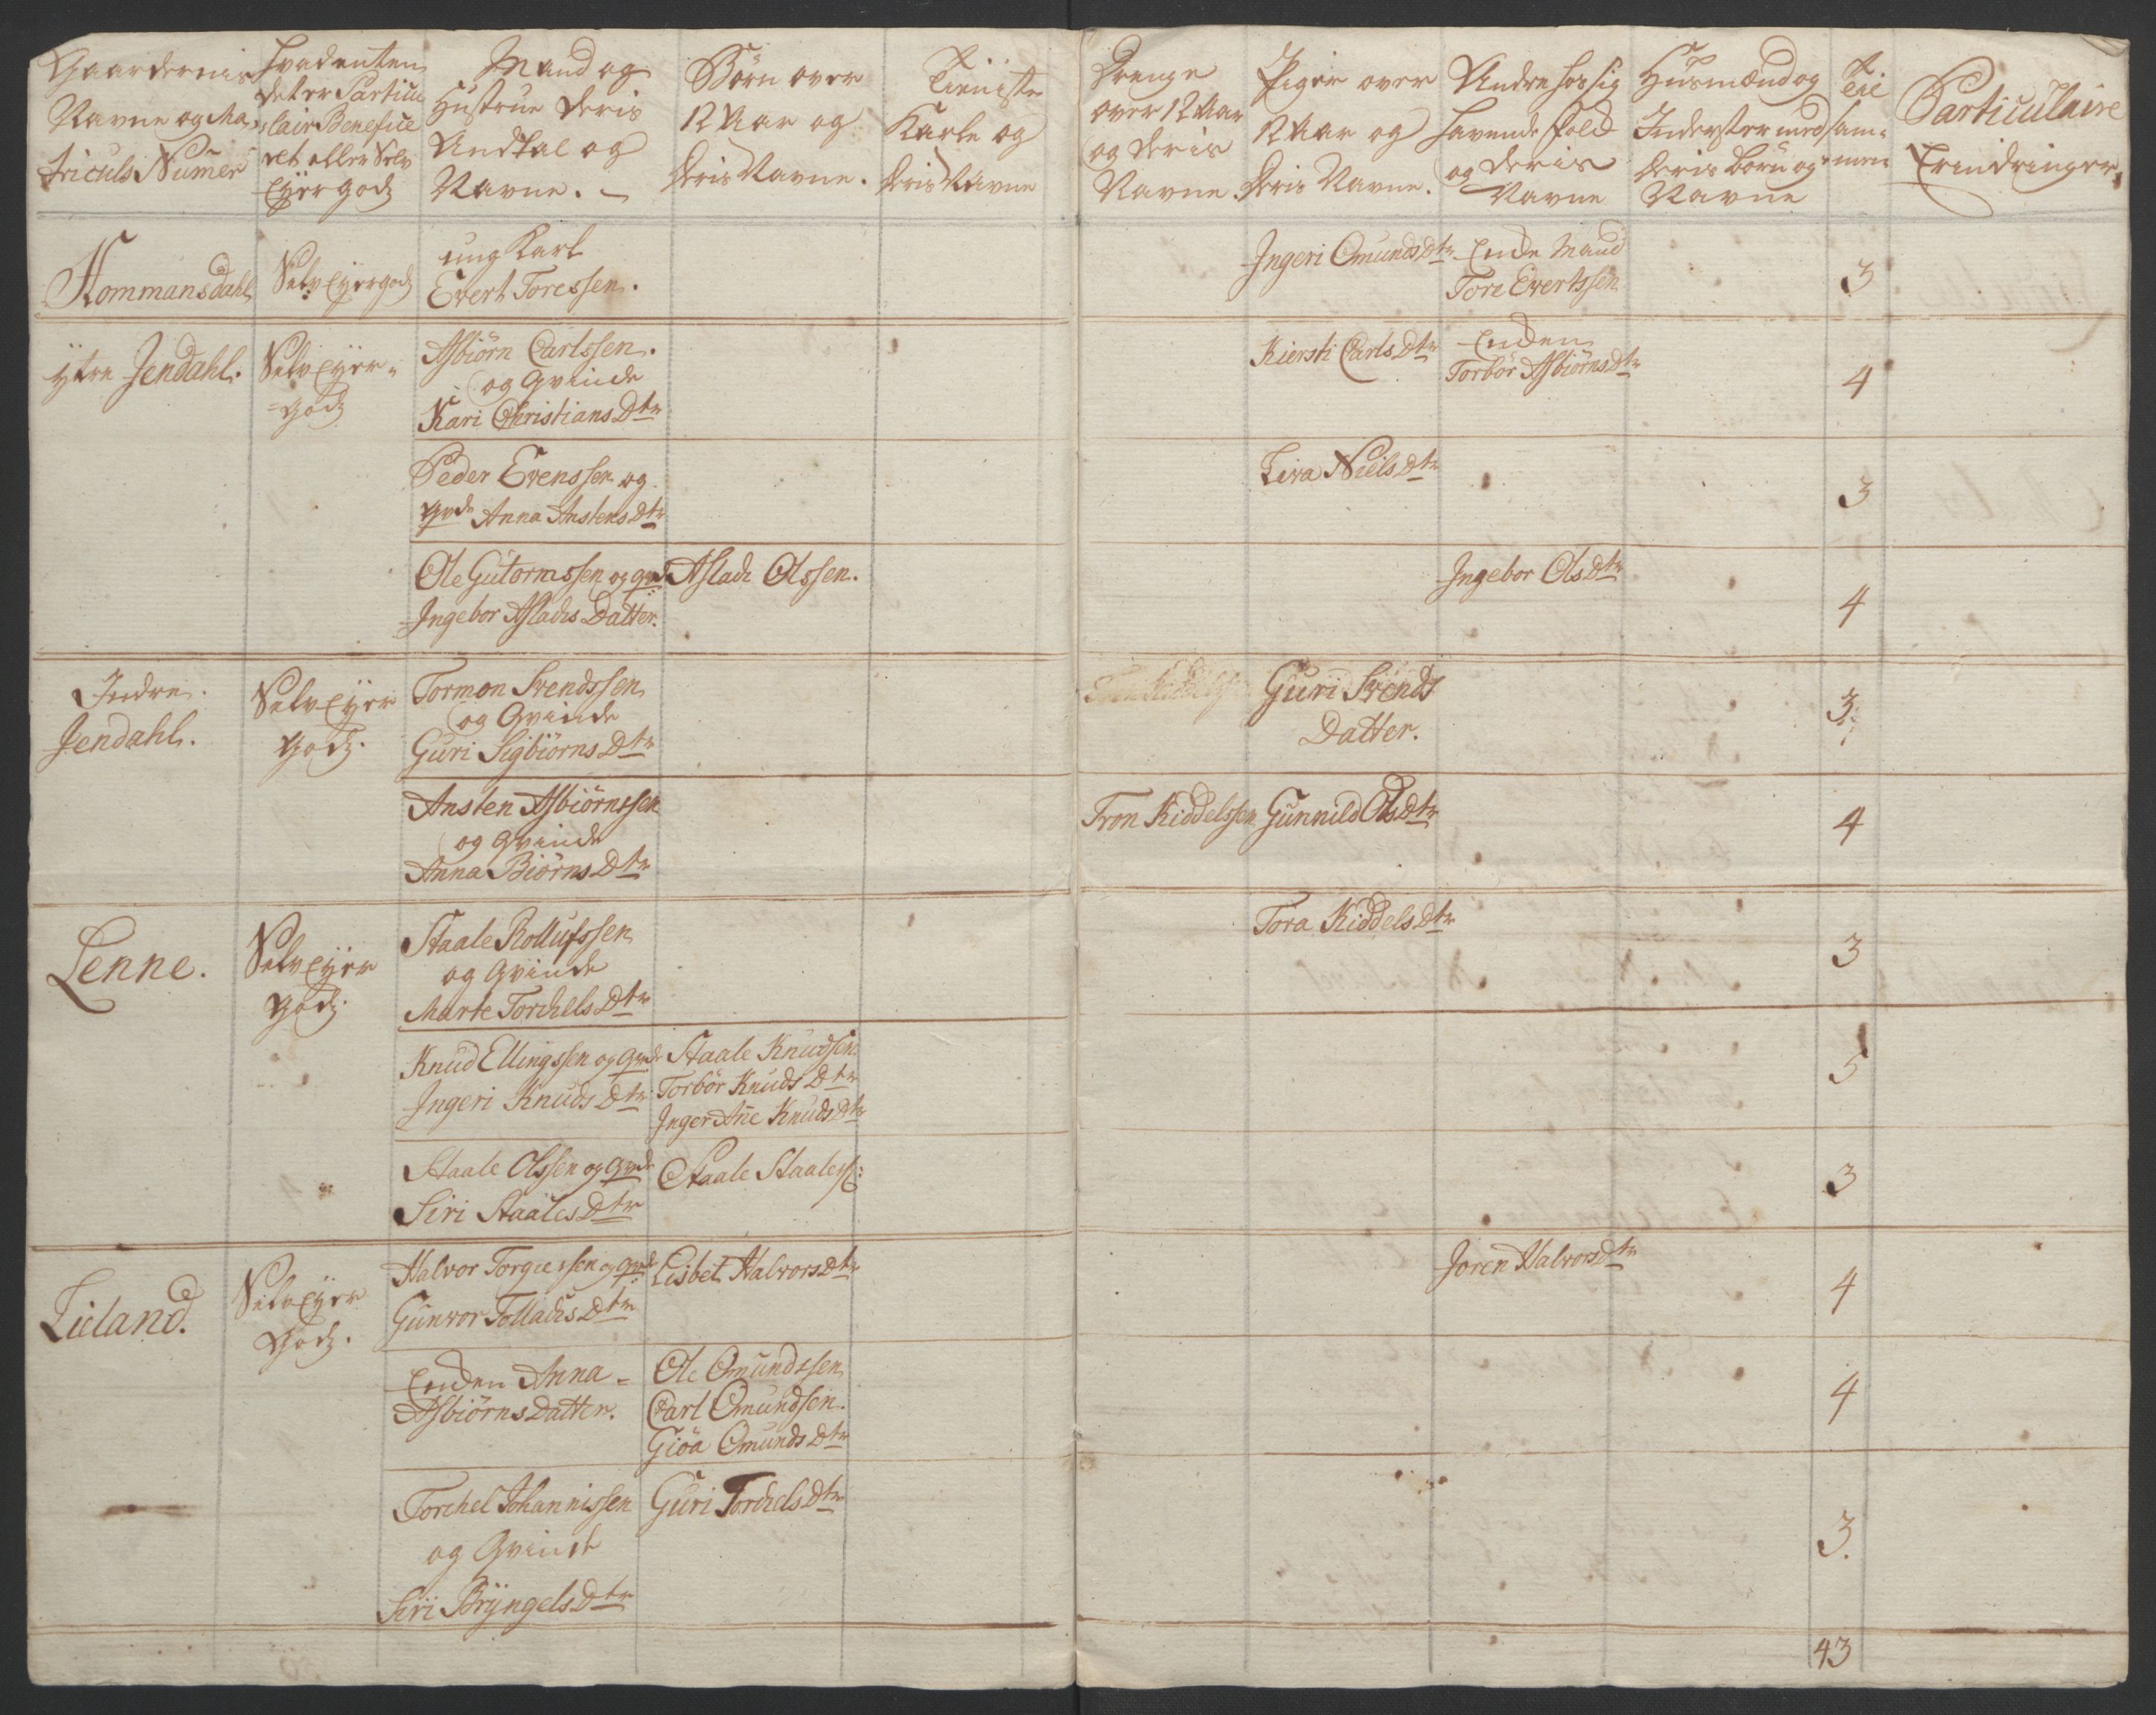 Gaardernis
Navne og Ma,,
triculs Numer
Hvad enten
det er Particu
,,lair Benefice
ret eller Selv
Eyer godz
Mand og
Hustrue deris
Andtal og
Navne. –
Børn over
12 Aar og
deris Navne.
Tieniste
Karle og
deris Navne
Drenge
over 12 Aar
og deris
Navne.
Piger over
12 Aar og
deris Navne.
Andre hos sig
havende folk
og deris
Navne
Husmænd og
Inderster med
deris børn og
Navne
Til
sam=
men=
Particulaire
Erindringer,
Kommansdahl
Selv Eyergodz
ung Karl
Evert Toressen.
Ingeri Omunds Dtr
Enke Mand
Tore Evertssen
3
Ytre Jendahl.
Selv Eyer=
=godz
Asbiørn Carlssen.
og Qvinde
Kari Christians Dtr
Kiersti Carls Dtr
Enken
Torbør Asbiørns Dtr
4
Peder Evenssen og
qvde Anna Anstens Dtr
Liva Niels Dtr
3
Ole Gutormssen og qvde
Ingebor Aslachs Datter.
Aslach Olssen.
Ingebor Ols Dtr
4
Indre
Jendahl.
Selv Eyer
godz.
Tormon Svendssen
og Qvinde
Guri Sigbiørns Dtr
Guri Svends
Datter.
3
Ansten Asbiørnssen
og Qvinde
Anna Biørns Dtr
Tron Kiddelssen
Gunnild Ols Dtr
4
Lenne.
Selv Eyer
godz.
Staale Rollufssen
og Qvinde
Marte Torchels Dtr
Tora Kiddels Dtr
3
Knud Ellingssen og Qvde
Ingeri Knuds Dtr
Staale Knudsen
Torbør Knuds Dtr
Inger Añe Knuds Dtr
5
Staale Olssen og Qvde
Siri Staales Dtr
Staale Staaless:
3
Lieland.
Selv Eyer
Godz.
Halvor Torgiessen og qvde
Gunvor Tollachs Dtr
Lisbet Halvors Dtr
Joren Halvors Dtr
4
Enken Anna =
Asbiørns Datter.
Ole Omundssen
Carl Omundsen.
Giøa Omunds Dtr
4
Torchel Johannissen
og Qvinde
Siri Brÿngels Dtr
Guri Torchels Dtr
3.
43